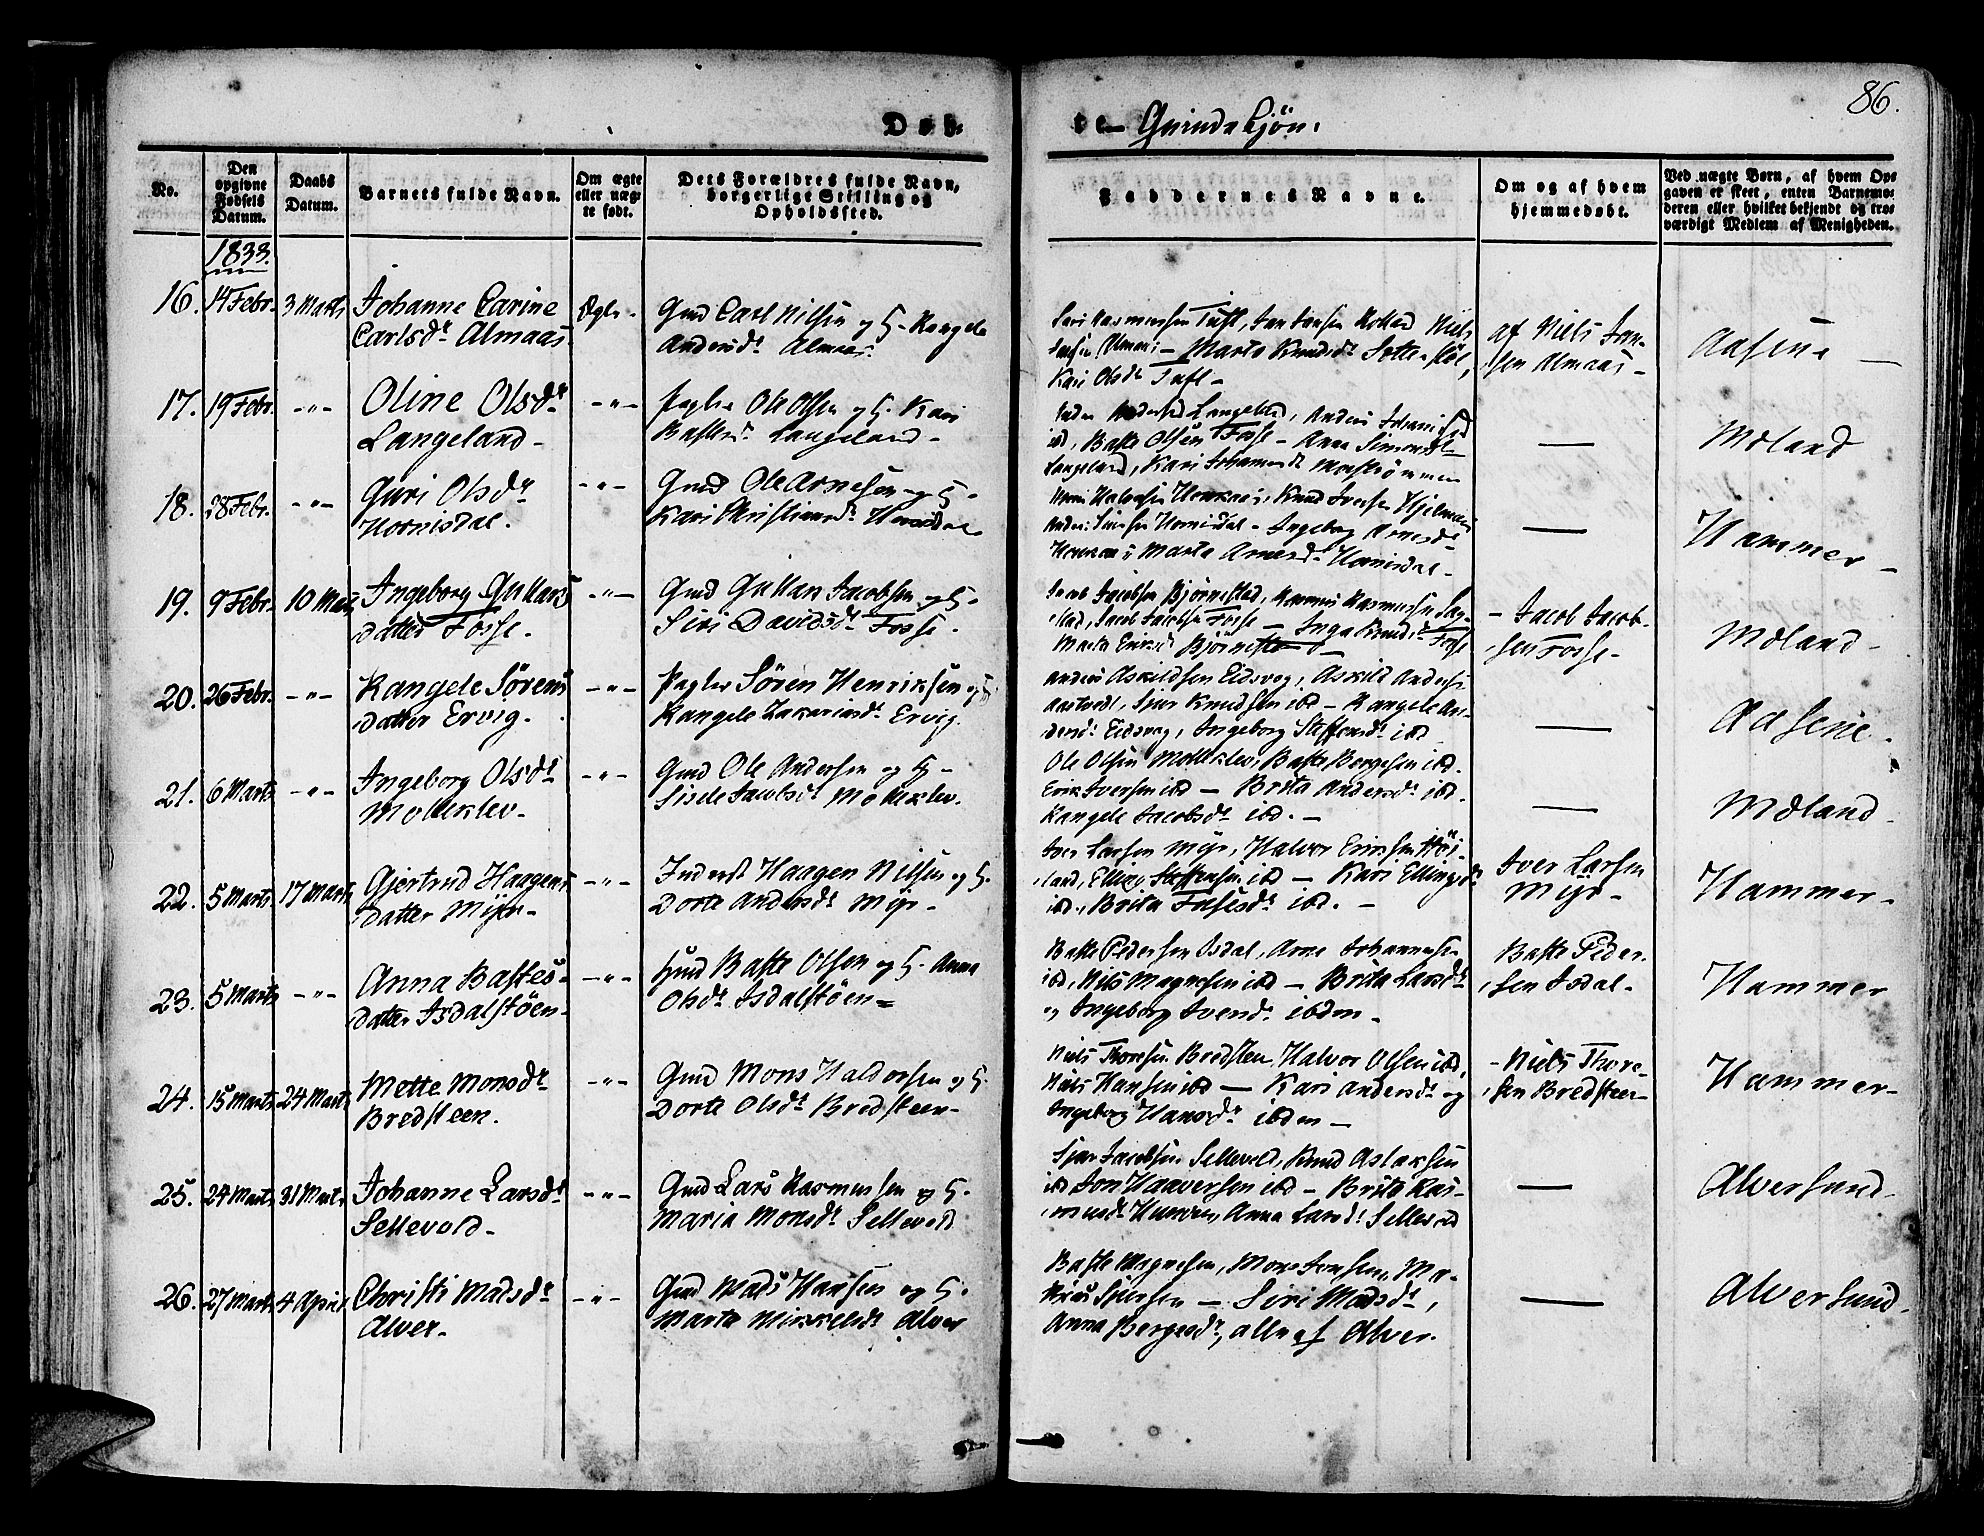 86.
Døb-
te- Qvindekjön.
No.
Den opgivne Fødsels Datum.
Daabs Datum.
Barnets fulde Navn.
Om ægte eller uægte født.
Dets Forældres fulde Navn, borgerlige Stilling og Opholdssted.
Faddernes Navne.
Om og af hvem hjemmedøbt.
Ved uægte Børn, af hvem Opgaven er skeet, enten Barnemoderen eller hvilket bekjendt og troværdigt Medlem af Menigheden.
1833.
16. 14 Febr. 3 Marts Johanne Carine Ægte-
Carlsdr Almaas
Gmd Carl Nilsen og H. Rangele
Andersdr Almaas.
Lars Rasmussen Tuft, Jan Jansen Niels
Jansen Almaas - Marta Knudsdr
Kari Olsdr Tuft -
af Niels Jan-
sen Almaas -
Aasene -
17. 19 Febr. -"- Oline Olsdr -"-
Langeland -
Ole Olsen og H. Kari
Bastesdr Langeland -
Langeland, Anders
ibd, Baste Olsen Fosse - Anna Simonsdr
Langeland, Kari Johannesdr
—
Mæland
18. 28 Febr. -"- Guri Olsdr -"-
Hornisdal.
Gmd Ole Arnesen og H.
Kari Christiansdr
Knud Iversen Hjelmaas
Hornisdal - Ingeborg Arnesdr
Marta Arnesdr Hornisdal -
—
Hammer -
19. 9 Febr. 10 Marts Ingeborg Gullaks -"-
datter Fosse.
Gmd Gullak Jacobsen og H.
Siri Davidsdr Fosse.
Jacob Jacobsen Bjørnestad, Rasmus Rasmussen
Jacob Jacobsen Fosse - Inga Knudsdr Fosse
Marta Eriksdr Bjørnestad -
- Jacob Jacob-
sen Fosse -
Mæland -
20. 26 Febr. -"- Rangele Sørens -"-
datter Ervig.
Søren Henriksen og H.
Rangele Zakariasdr Ervig.
Anders Askildsen Eidsvog, Askild Anders
Sjur Knudsen ibd - Rangele An-
dersdr Eidsvog, Ingeborg Steffensdr ibd
—
Aasene.
21. 6 Marts -"- Ingeborg Olsdr -"-
Molleklev -
Gmd Ole Andersen og H -
Sisele Jacobsdr Molleklev.
Ole Olsen Molleklev, Baste Børgesen ibd.
Erik Iversen ibd - Brita Andersdr ibd.
Rangele Jacobsdr ibd. -
—
Mæland -
22. 5 Marts 17 Marts Gjertrud Haagens -"-
datter Myr -
Inderst Haagen Nilsen og H.
Dorte Andersdr Myr -
Iver Larsen Myr, Halvor Eriksen Høi-
land, Elling Steffensen ibd - Kari Ellingsdr
ibd, Brita ibd. -
Iver Larsen
Myr -
Hammer -
23. 5 Marts -"- Anna Bastes- -"-
datter Isdalstöen -
Hmd Baste Olsen og H. Anna
Olsdr Isdalstöen -
Baste Pedersen Isdal, Arne Johannesen
ibd, Nils Magnesen ibd - Brita Larsdr
og Ingeborg Iversdr ibden -
Baste Peder-
sen Isdal -
Hammer
24. 15 Marts 24 Marts Mette Monsdr -"-
Bredsteen.
Gmd Mons Haldorsen og H.
Dorte Olsdr Bredsteen -
Niels Thoresen Bredsteen, Halvor Olsen ibd,
Niels Hansen ibd - Kari Andersdr og
Ingeborg Hansdr ibden -
- Niels Thore-
sen Bredsteen -
Hammer -
25. 24 Marts 31 Marts Johanne Larsdr -"-
Sellevold -
Gmd Lars Rasmussen og H.
Maria Monsdr Sellevold
Sjur Jacobsen Sellevold, Knud Aslaksen
ibd Jon Haaversen ibd - Brita Ras-
musdr Anna Larsdr Sellevold
—
Alversund -
26. 27 Marts 4 April Christi Madsdr -"-
Alver -
Gmd Mads Hansen og H.
Marta Mikkelsdr Alver
Baste Magnesen, Mons Jonsen, Ma-
Sjursen - Siri Madsdr,
Anna Børgesdr, alle af Alver.
—
Alversund -